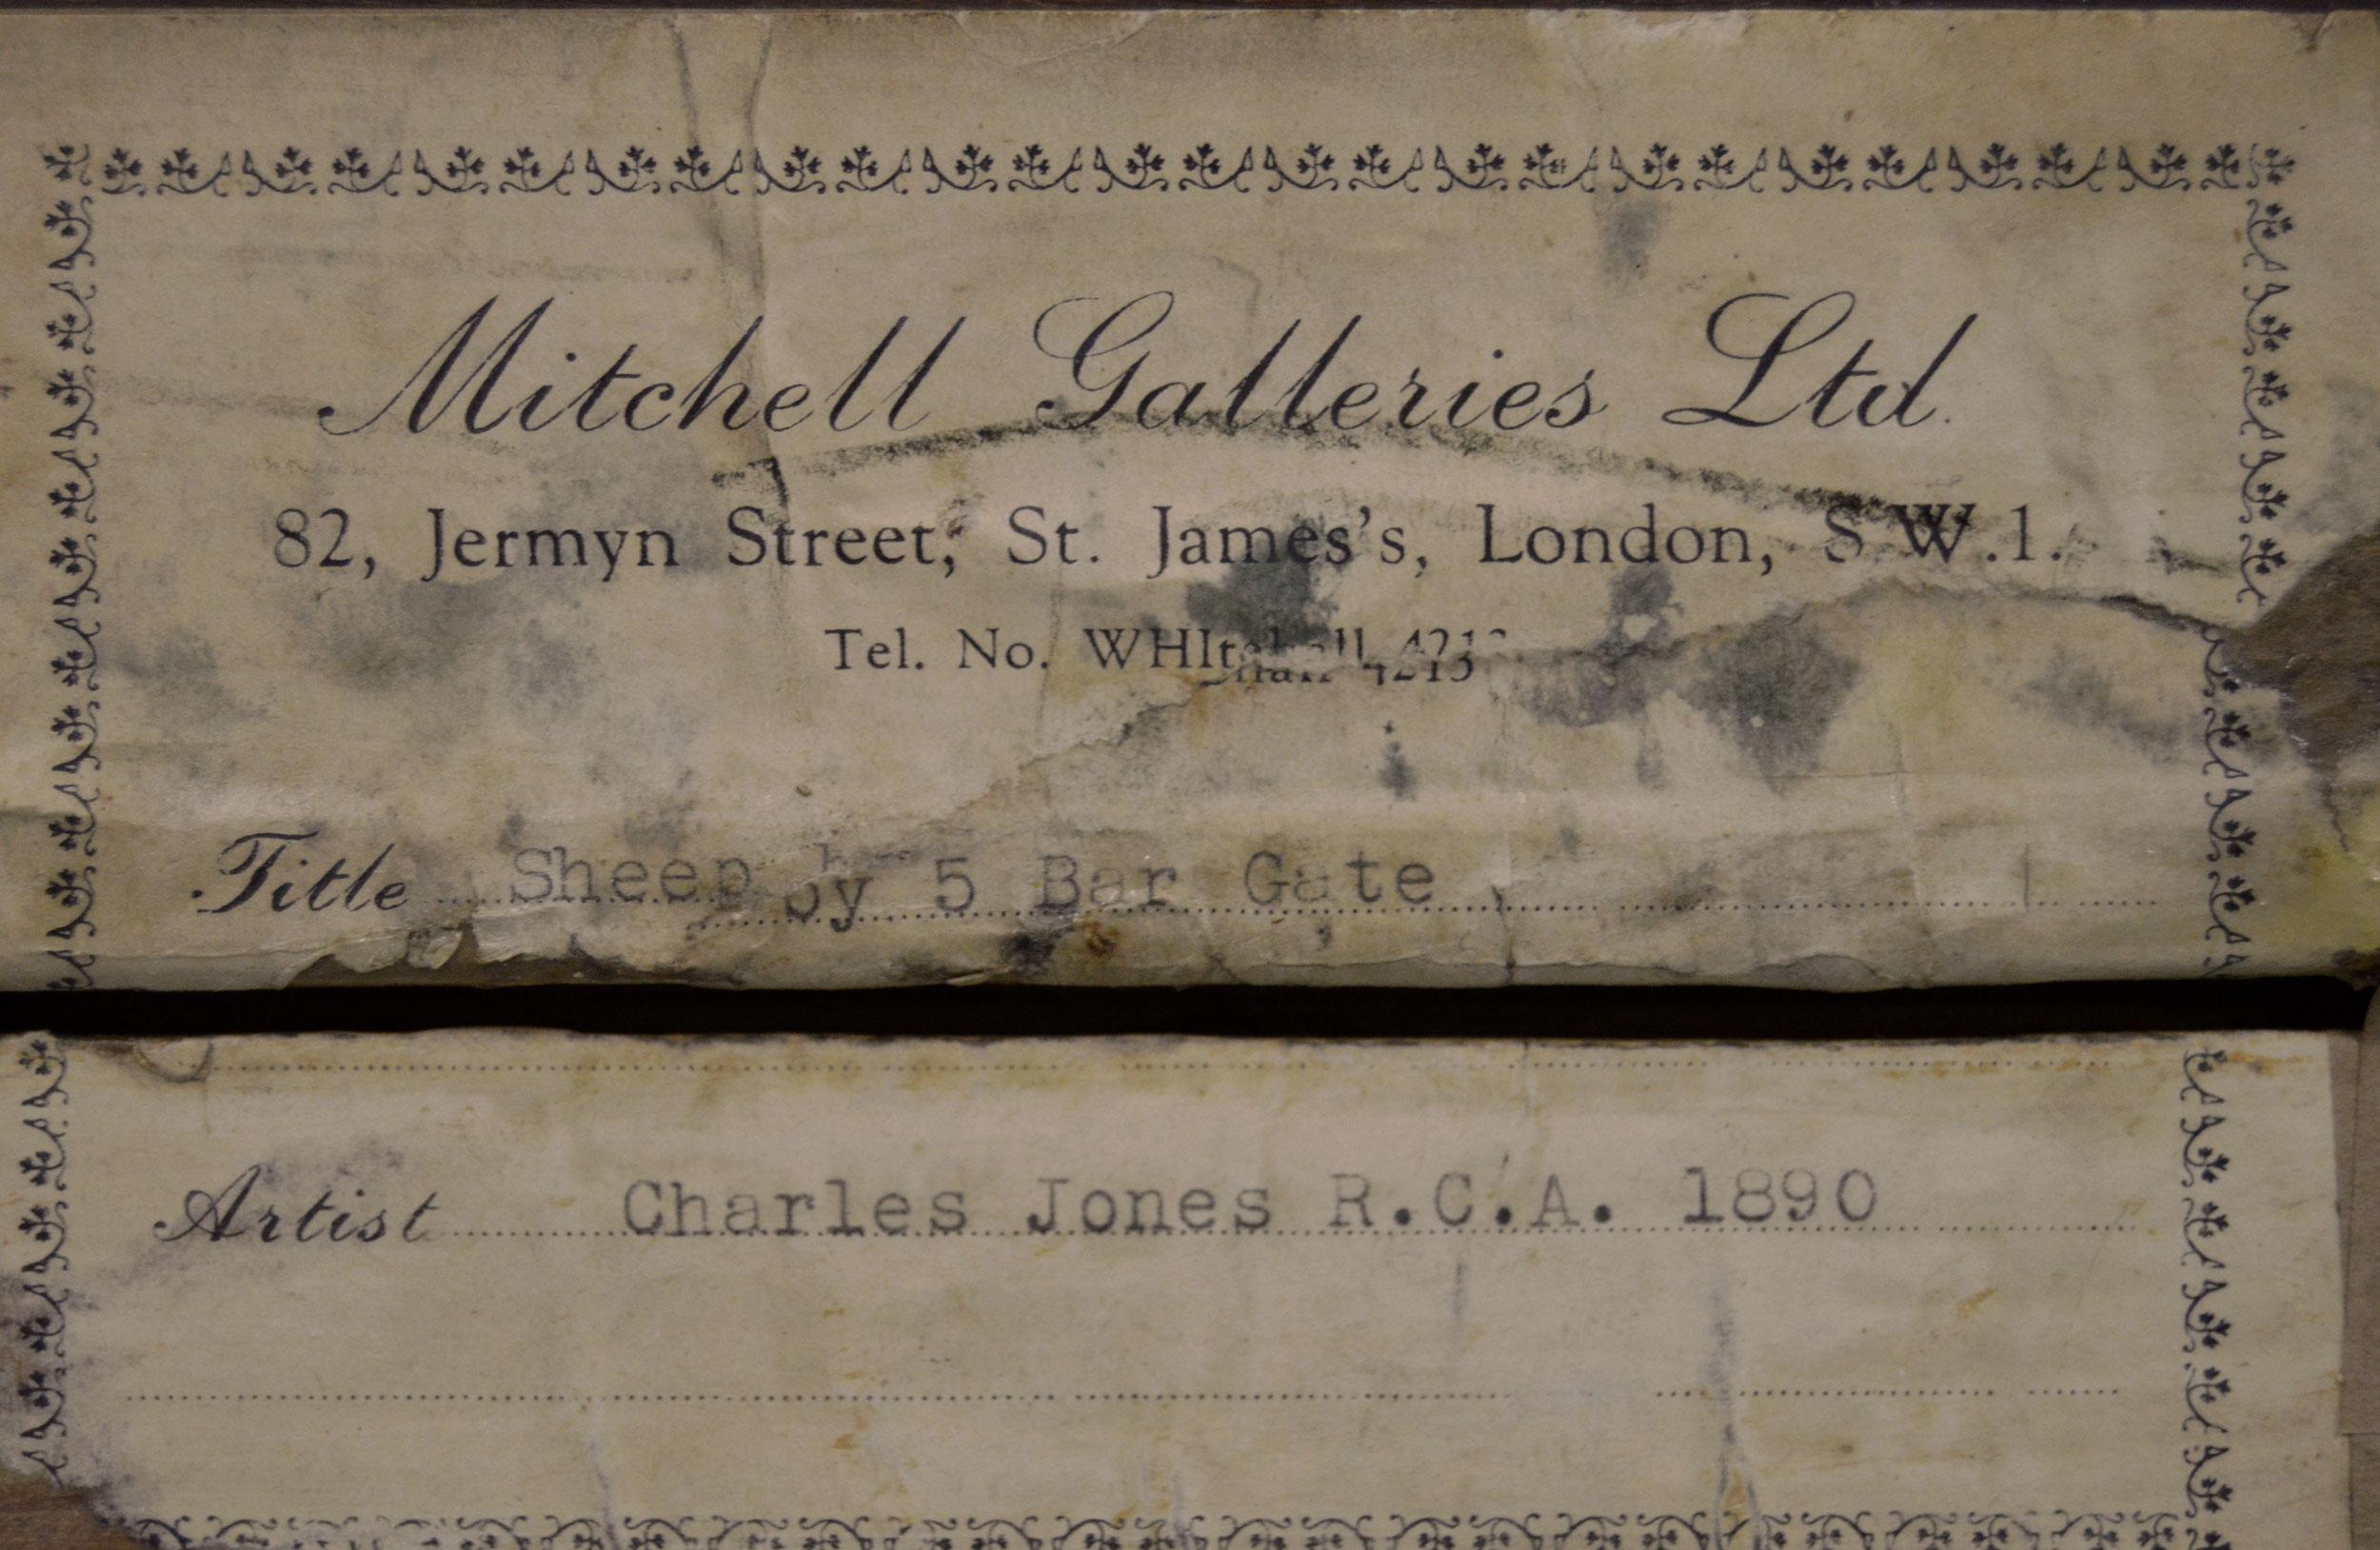 Mitchell Galleries Ltd.
82, Jermyn Street, St. James's, London, S.W.1.
Tel. No. WHItehall 4213
Title Sheep by 5 Bar Gate
Artist Charles Jones R.C.A. 1890